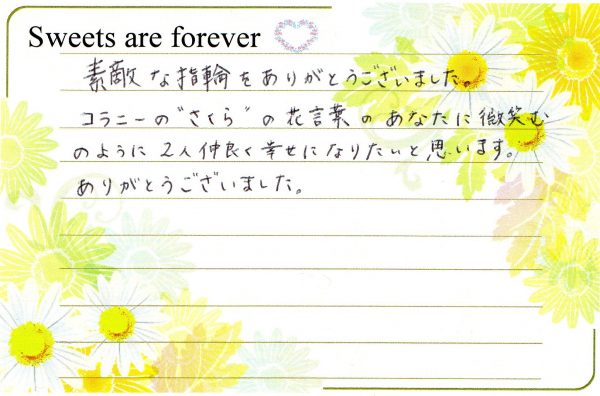 Sweets are forever
素敵な指輪をありがとうございました。
コラニーの"さくら"の花言葉のあなたに微笑む
のように2人仲良く幸せになりたいと思います。
ありがとうございました。